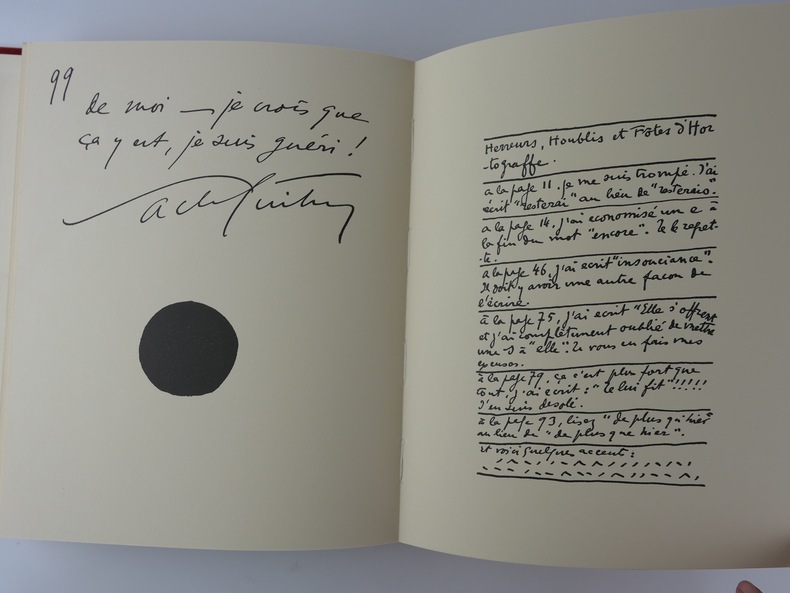 99
de moi — je crois que
ça y est, je suis guéri !
Sacha Guitry
Herreurs, Houblis et Fôtes d'Hor
-tograffe.
a la page 11. je me suis trompé. J'ai
écrit "resterai" au lieu de "resterais".
a la page 14, j'ai economisé un e à
la fin du mot "encore". Je le regret-
te.
a la page 46, j'ai ecrit "insouciance".
Il doit y avoir une autre facon de
l'écrire.
à la page 75, j'ai ecrit "Elle s'offrent
et j'ai complètement oublié de mettre
une S à "elle". Je vous en fais mes
excuses.
à la page 79, ça c'est plus fort que
tout, j'ai ecrit : "le lui fit" !!!!!
J'en suis desolé.
à la page 93, lisez "de plus qu'hier"
au lieu de "de plus que hier".
et voici quelques accent :